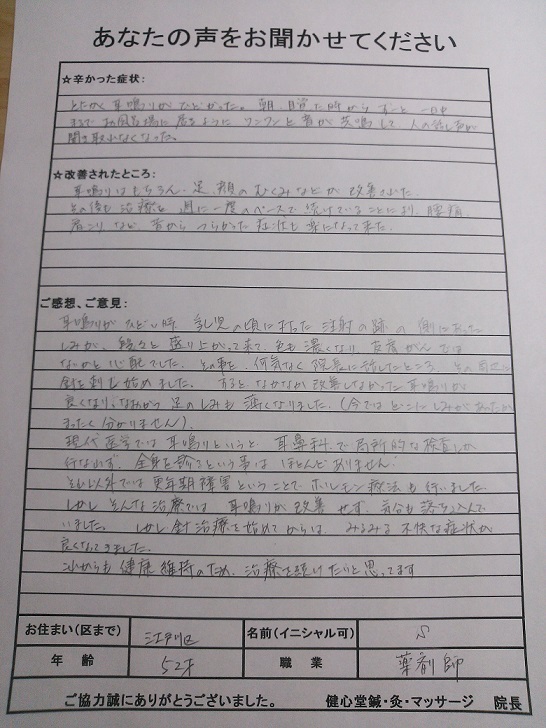 あなたの声をお聞かせてください
☆辛かった症状:
とにかく耳鳴りがひどかった。朝、目覚た時からずーと一日中
まるでお風呂場に居るようにワンワンと音が共鳴して人の話し声が
聞き取れなくなった。
☆改善されたところ:
耳鳴りはもちろん、足、顔のむくみなどが改善された。
その後も治療を週に一度のペースで続けていることにより、腰痛、
肩こりなど昔からつらかった症状も楽になって来た。
ご感想、ご意見:
耳鳴りがひどい時、乳児の頃に打った注射の跡の側にあった
しみが、段々と盛り上がって来て、色も濃くなり皮膚がんでは
ないかと心配でした。その事を、何気なく院長に話したところ、その周辺に
針を刺し始めました。するとなかなか改善しなかった耳鳴りが
良くなり、なおかつ足のしみも薄くなりました。(今ではどこにしみがあったか
まったく分かりません)。
現代医学では耳鳴りというと、耳鼻科で局所的な検査しか
行なわず、全身を診るという事はほとんどありません。
それ以外では更年期障害ということで、ホルモン療法も行いました。
しかしそんな治療では、耳鳴りが改善せず、気分も落ち込んで
いました。しかし針治療を始めてからは、みるみる不快な症状が
良くなってきました。
これからも健康維持のため、治療を続けたいと思ってます
お住まい(区まで) 江戸川区 名前(イニシャル可) S
年齢 52才 職業 薬剤師
ご協力誠にありがとうございました。 健心堂鍼・灸・マッサージ 院長